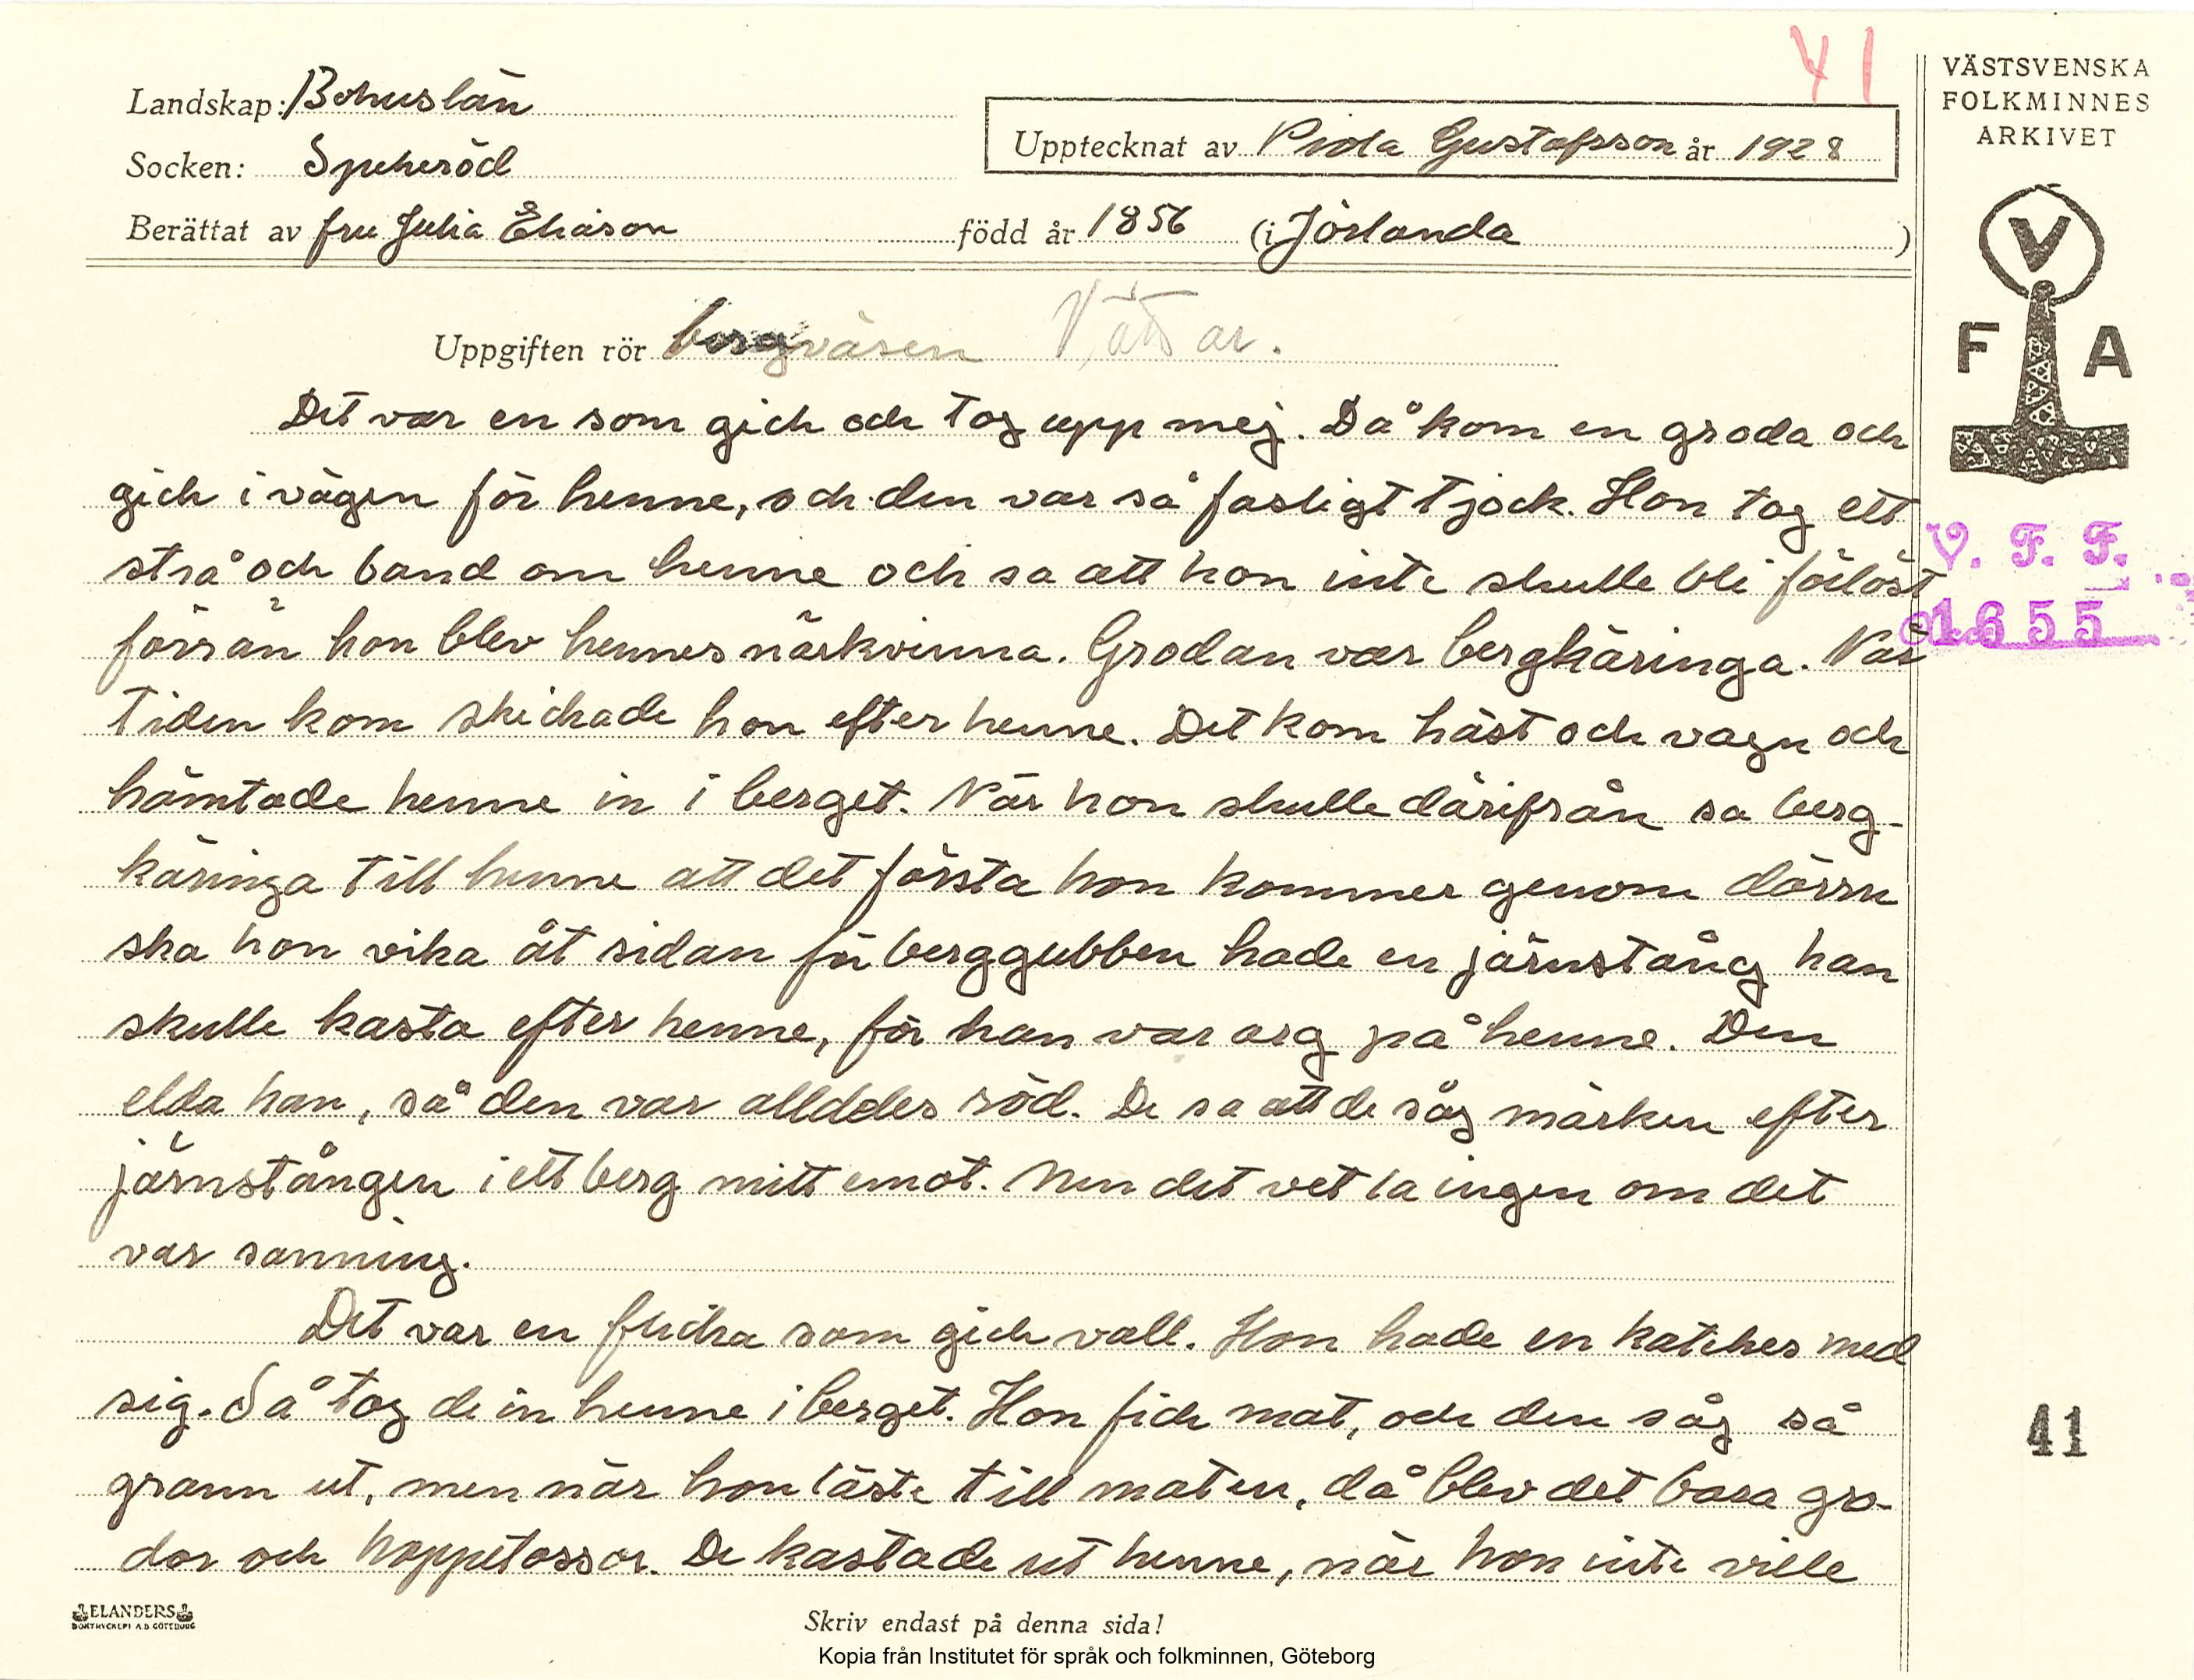 41
VÄSTSVENSKA
FOLKMINNES
ARKIVET
Landskap: Bohuslän
Upptecknat av Viola Gustafsson år 1928
Socken: Spekeröd
Berättat av fru Julia Eliason född år 1856 (i Jörlanda)
V
F A
Uppgiften rör bergväsen Vättar.
Det var en som gick och tog upp mej. Då kom en groda och
gick i vägen för henne, och den var så fasligt tjock. Hon tog ett
strå och band om henne och sa att hon inte skulle bli förlöst
förrän hon blev hennes närkvinna. Grodan var bergkäringa. När
tiden kom skickade hon efter henne. Det kom häst och vagn och
hämtade henne in i berget. När hon skulle därifrån sa berg-
käringa till henne att det första hon kommer genom dörrn
ska hon vika åt sidan för berggubben hade en järnstång han
skulle kasta efter henne, för han var arg på henne. Den
elda han, så den var alldeles röd. De sa att de såg märken efter
järnstången i ett berg mitt emot. Men det vet la ingen om det
var sanning.
Det var en flicka som gick vall. Hon hade en katekes med
sig. Så tog de in henne i berget. Hon fick mat, och den såg så
grann ut, men när hon läste till maten, då blev det bara gro-
dor och hoppetossor. De kastade ut henne, när hon inte ville
V. F. F.
1655
41
ELANDERS
BOKTRYCKERI A.B. GÖTEBORG
Skriv endast på denna sida!
Kopia från Institutet för språk och folkminnen, Göteborg